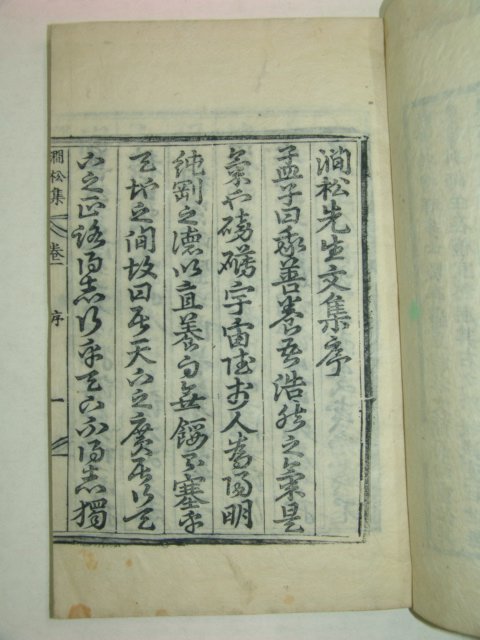 澗松先生文集序
孟子曰我善養吾浩然之氣是
氣也磅礴宇宙人為陽明
純剛之德以直養而無餒乃塞乎
天地之間故曰居天下之廣居行天
下之正路得志行乎天下不得志獨
澗松集 卷一 序 一